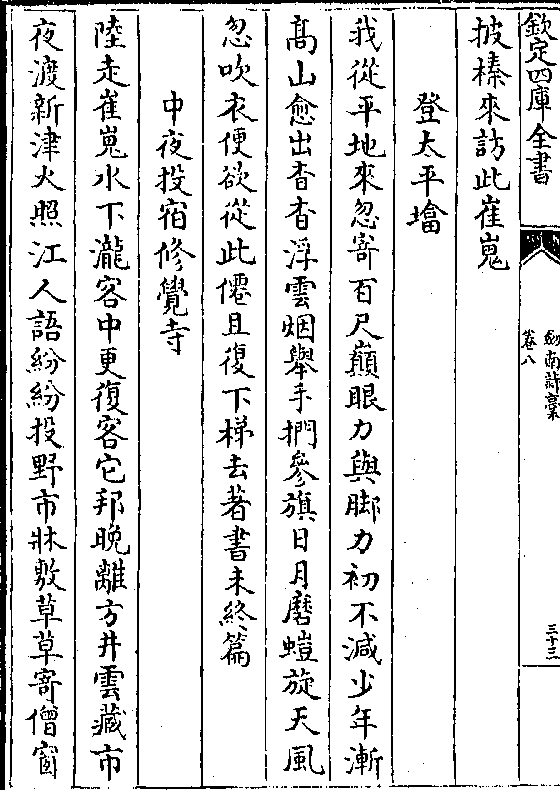 欽定四庫全書
劍南詩藁
卷八
三十三
披榛來訪此崔嵬
登太平塔
我從平地來忽寄百尺巔眼力與脚力初不減少年漸
髙山愈出杳杳浮雲烟舉手捫參旗日月磨螘旋天風
忽吹衣便欲從此僊且復下梯去著書未終篇
中夜投宿修覺寺
陸走崔嵬水下瀧客中更復客它邦晚離方井雲藏市
夜渡新津火照江人語紛紛投野市牀敷草草寄僧窗